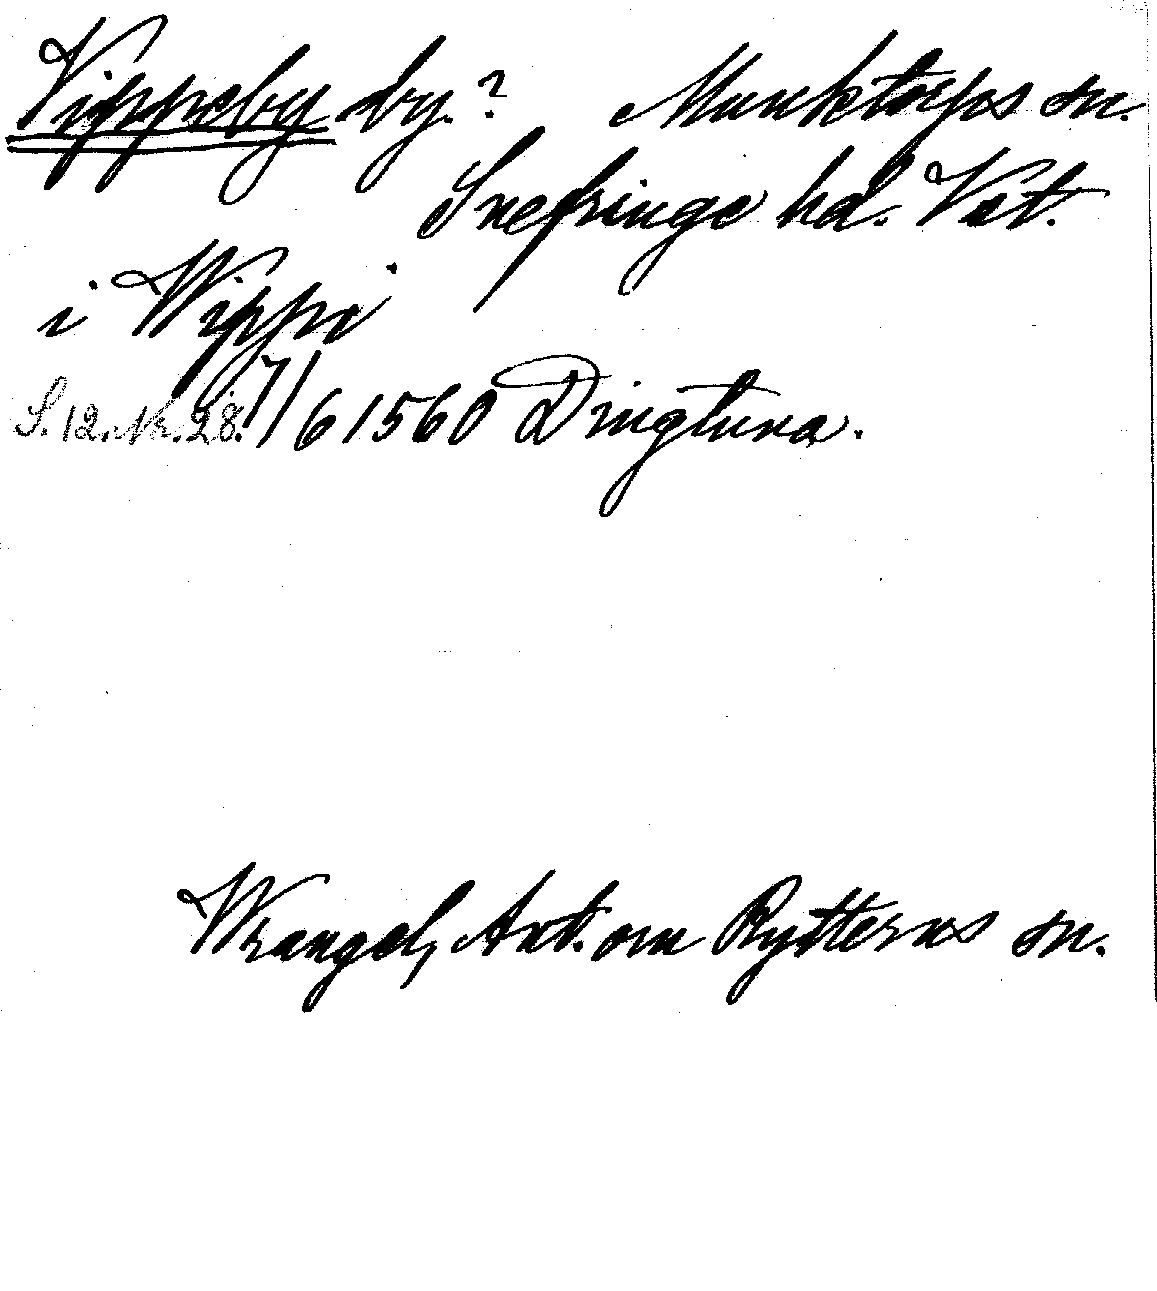 Vippeby by.? Munktorps sn.
Snefringe hd. Vstm.
i Wippi
S. 12. Nr. 28. 7/6 1560 Dingtuna.
Wrangel, Ant. om Rytterns sn.